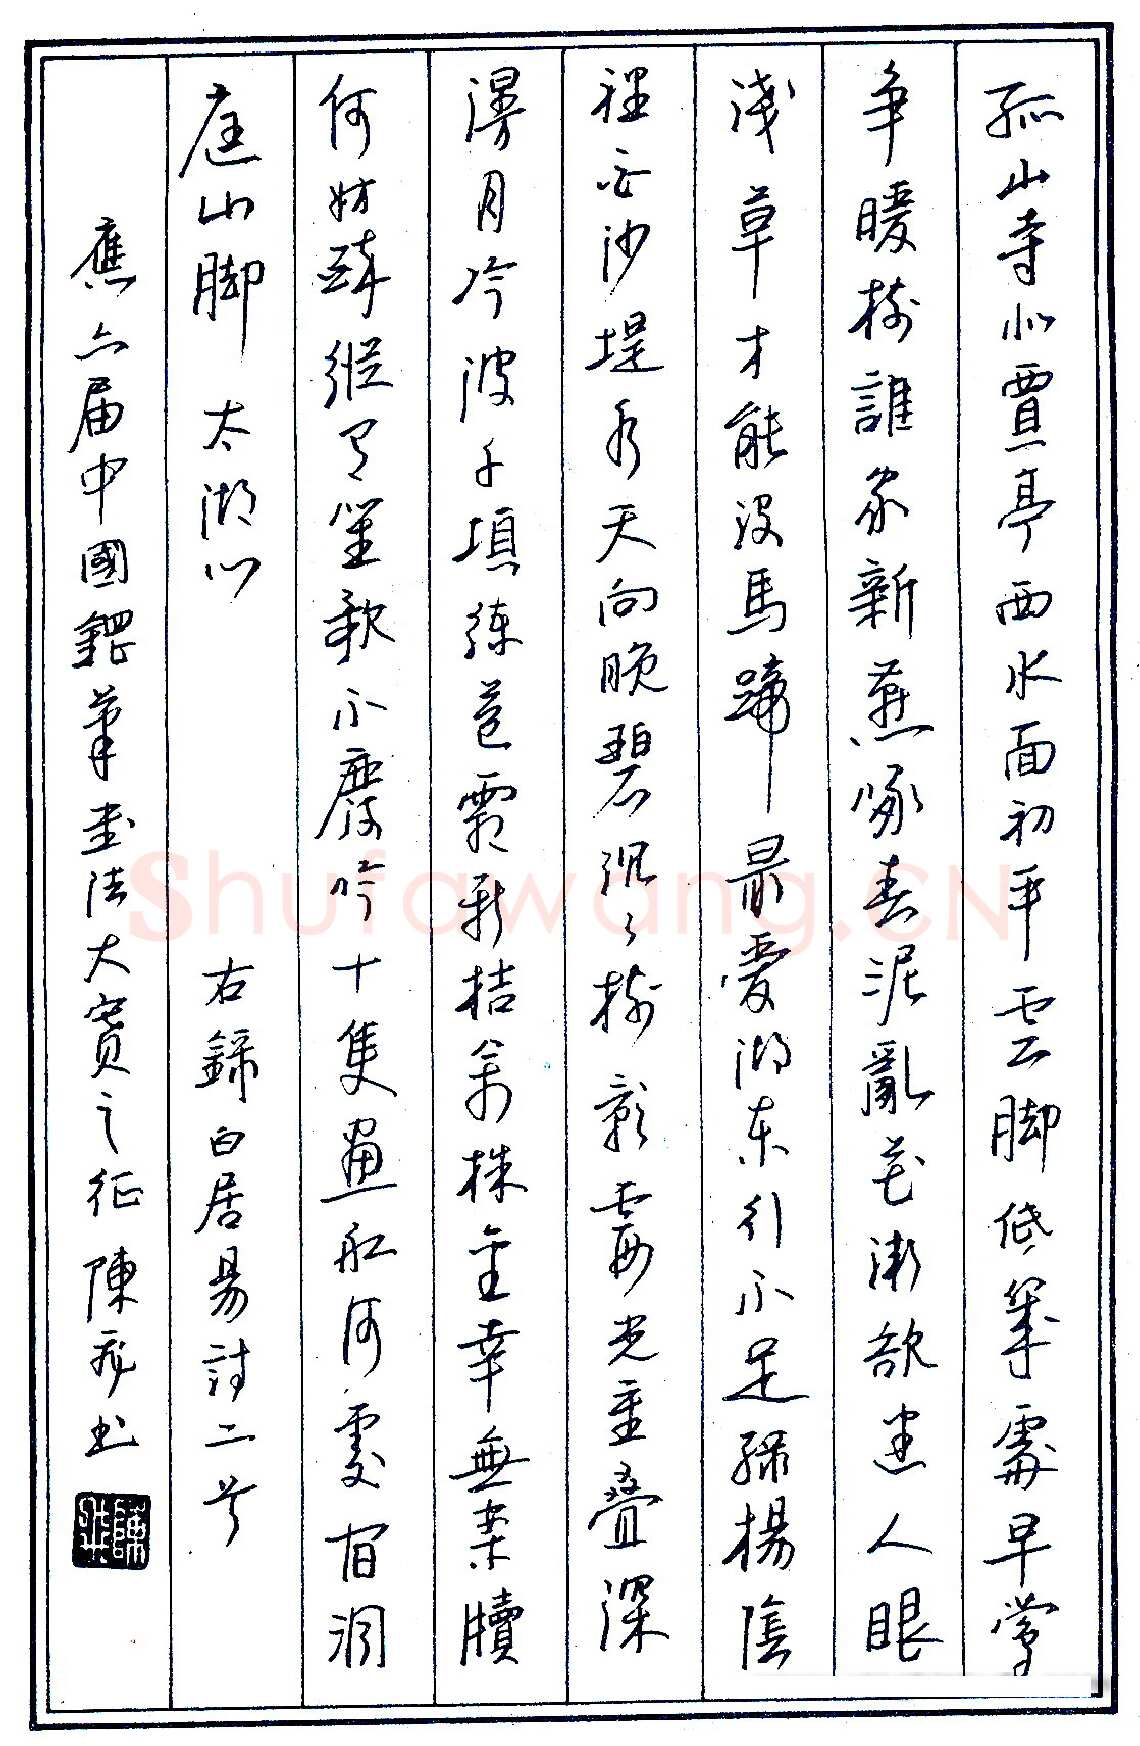 孤山寺北賈亭西水面初平雲脚低幾處早鶯
争暖樹誰家新燕啄春泥亂花漸欲迷人眼
淺草才能没馬蹄最愛湖東行不足綠楊陰
裡白沙堤水天向晚碧沉々樹影霞光重疊深
浸月冷波千頃練苞霜新桔萬株金幸無案牘
何妨醉縱有笙歌不廢吟十隻畫船何處宿洞
庭山脚太湖心 右錄白居易詩二首
應六届中國鋼筆書法大賽之征 陳书
Shufawang.CN